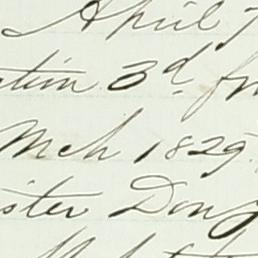 April 7
ction 3d fr
Mch 1829.
ister Doug